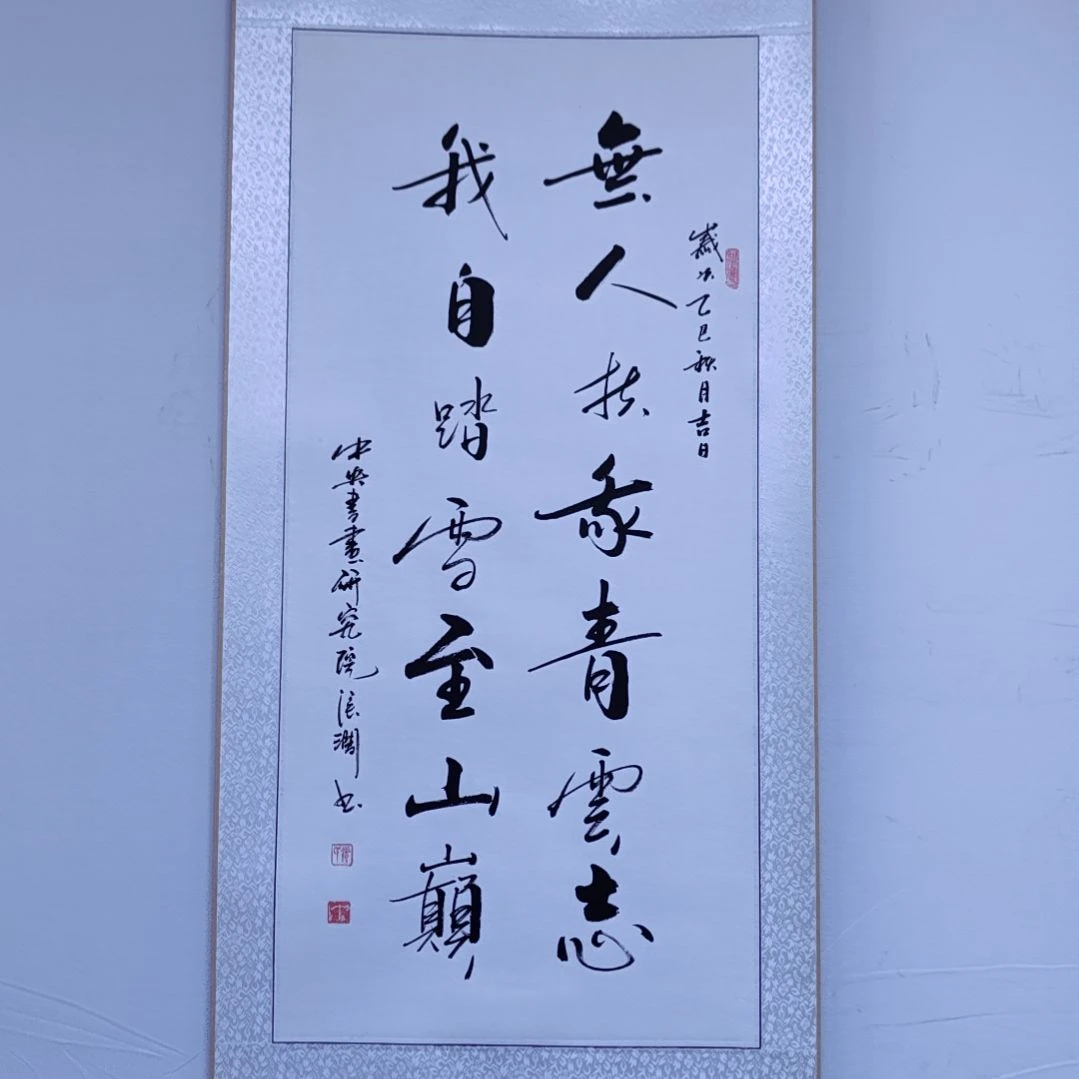 歲次乙巳秋月吉日
無人扶我青雲志
我自踏雪至山巔
中央書畫研究院 澗书